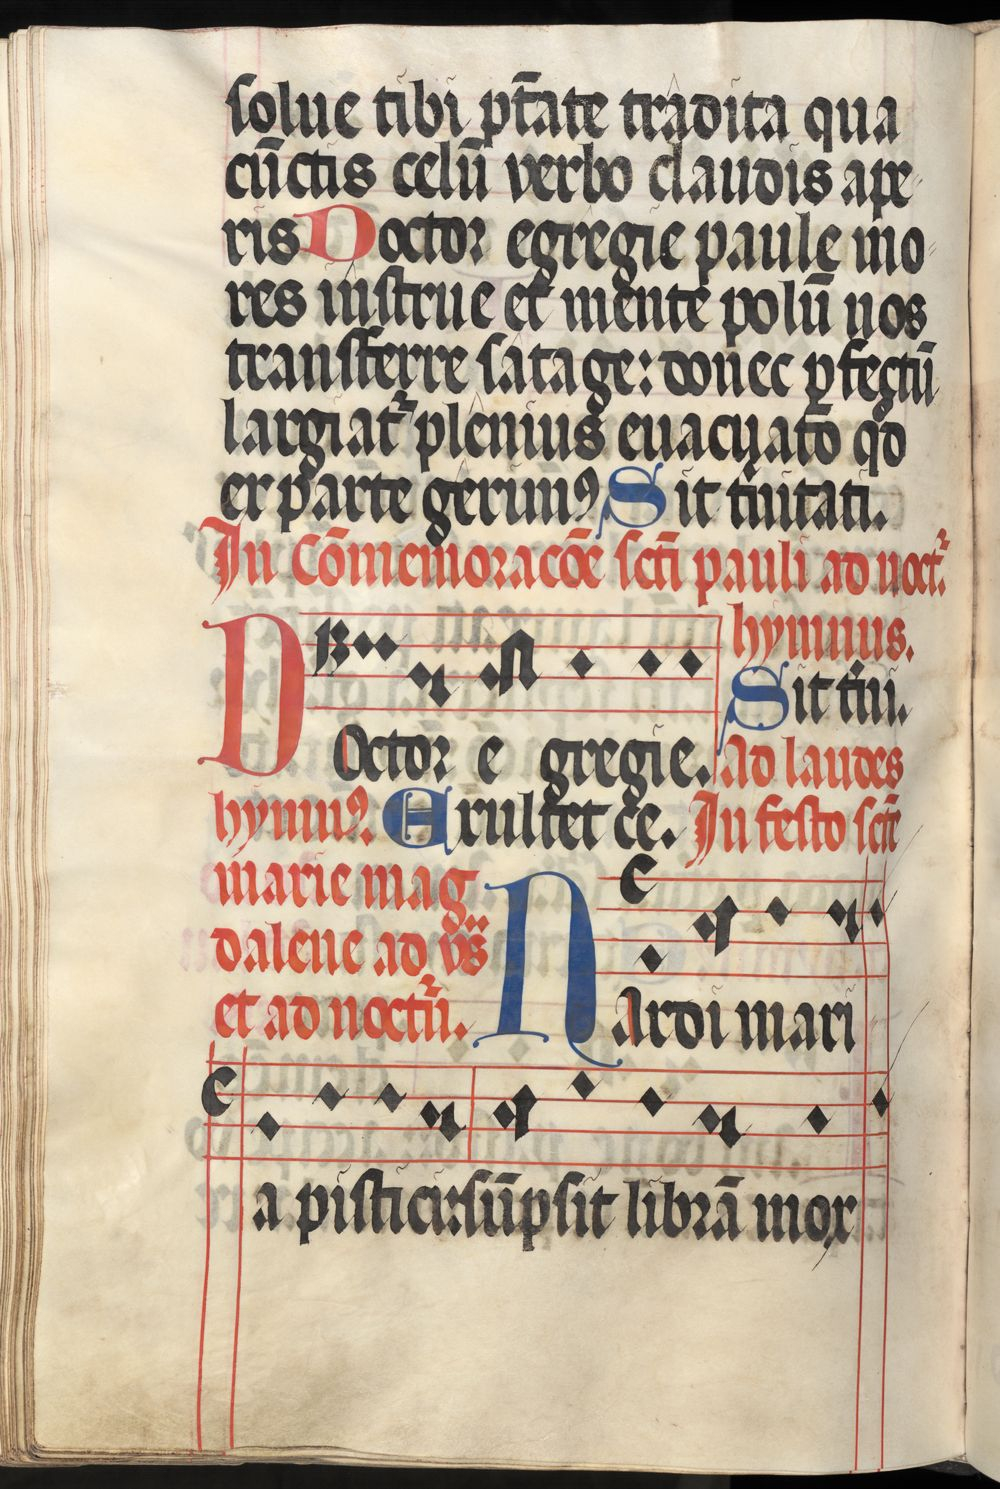 solue tibi ptāte tradita qua
cūctis celū verbo claudis ape
ris Doctor egregie paule mo
res instrue et mente polū nos
transferre satage: donec pfectū
largiat plenius euacuato qd
ex parte gerimꝰ Sit tinitati.
In cōmemoracōe scti pauli ad noct.
hymnus.
Sit tini.
Doctor e gregie. Ad laudes
hymnꝰ. Exultet ce. In festo scti
marie mag
dalene ad vs
et ad noctu.
Nardi mari
a pistici: sūpsit librā mox